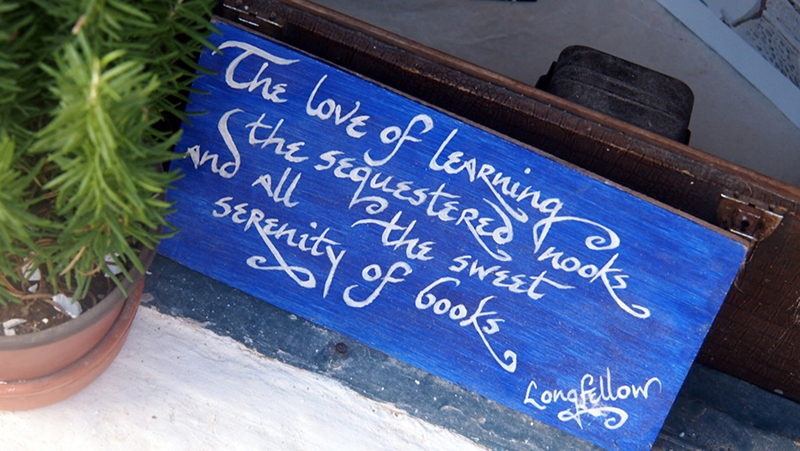 The love of learning
the sequestered nooks
and all the sweet
serenity of books
Longfellow